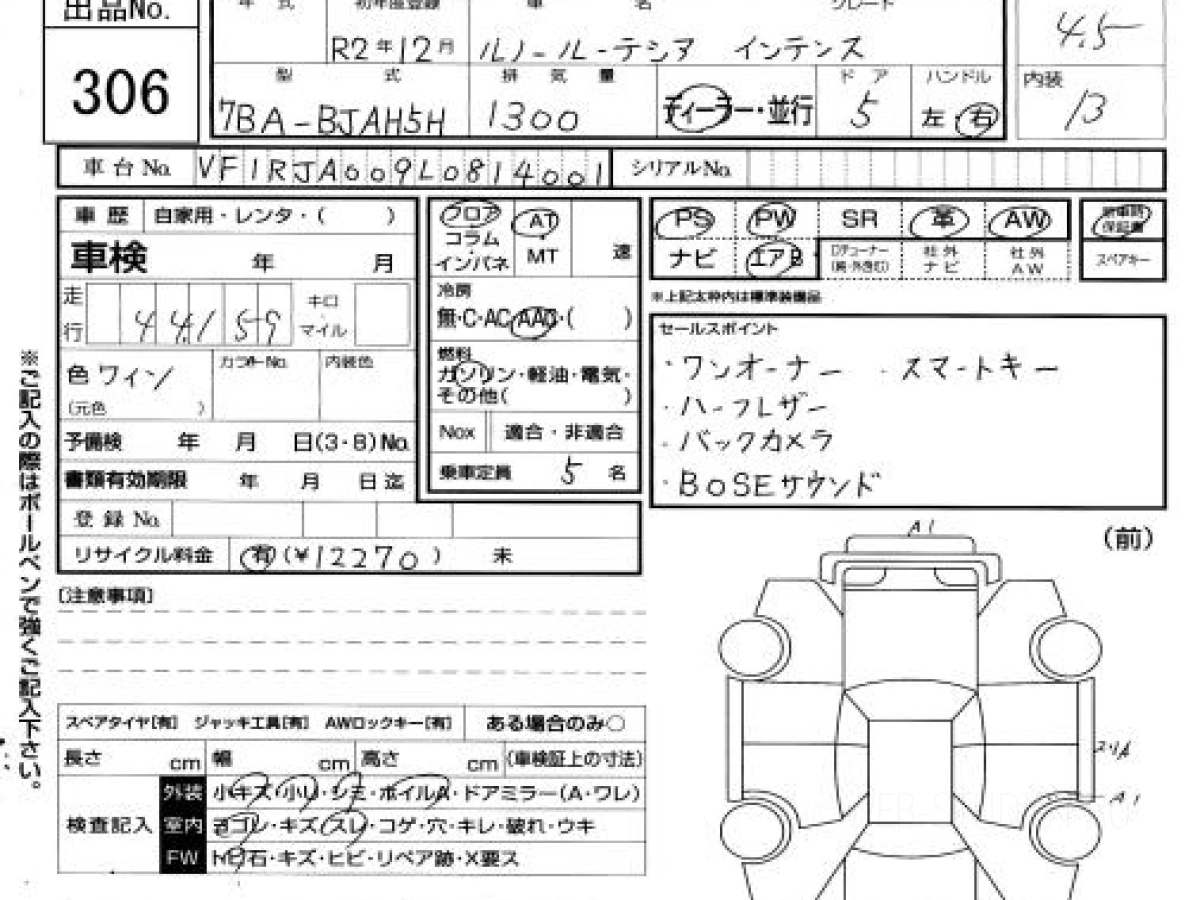 出品No.
年 式 初年度登録 車 名 グレード
306
R2年12月 ルノールーテシア インテンス
4.5
型 式 排 気 量 ドア ハンドル 内装
7BA-BJAH5H 1300 ディーラー・並行 5 左・右
13
車台No. VF1RJA009L0814001 シリアルNo.
車歴 自家用・レンタ・( )
フロア コラム インパネ
AT・MT 速
PS PW SR 革 AW 保証書
車検 年 月
ナビ エアB 社外ナビ 社外AW スペアキー
冷房
無・C・AC・AAC・( )
※上記太枠内は標準装備品
走行 44159 キロ・マイル
セールスポイント
色 ワイン カラーNo. 内装色
(元色 )
燃料
ガソリン・軽油・電気・
その他( )
・ワンオーナー ・スマートキー
・ハーフレザー
・バックカメラ
・BOSEサウンド
予備検 年 月 日(3・8)No.
Nox 適合・非適合
書類有効期限 年 月 日迄
乗車定員 5 名
登録No.
リサイクル料金 有(¥12270) 未
A1
(前)
[注意事項]
スペアタイヤ[有] ジャッキ工具[有] AWロックキー[有] ある場合のみ○
長さ cm 幅 cm 高さ cm (車検証上の寸法)
検査記入
外装 小キズ・小凹・シミ・ホイルA・ドアミラー(A・ワレ)
室内 ヨゴレ・キズ・スレ・コゲ・穴・キレ・破れ・ウキ
FW トビ石・キズ・ヒビ・リペア跡・X要ス
A1
※ご記入の際はボールペンで強くご記入下さい。